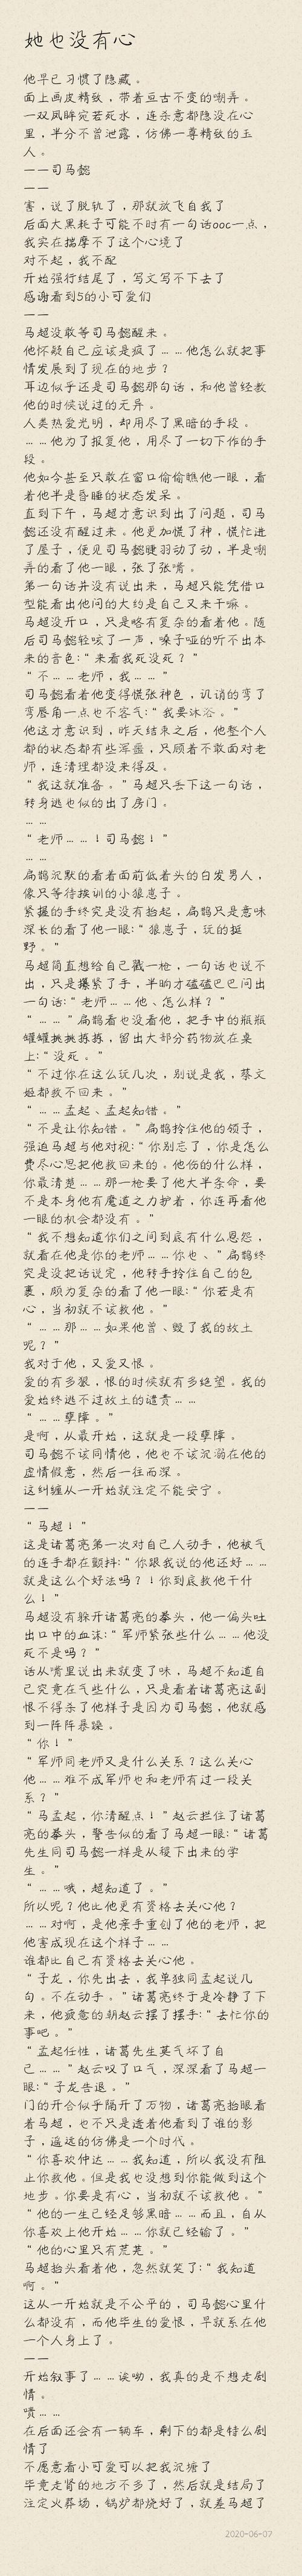 她也没有心
他早已习惯了隐藏。
面上画皮精致，带着亘古不变的嘲弄。
一双凤眸宛若死水，连杀意都隐没在心
里，半分不曾泄露，仿佛一尊精致的玉
人。
——司马懿
——
害，说了脱轨了，那就放飞自我了
后面大黑耗子可能不时有一句话ooc一点，
我实在揣摩不了这个心境了
对不起，我不配
开始强行结尾了，写文写不下去了
感谢看到5的小可爱们
——
马超没敢等司马懿醒来。
他怀疑自己应该是疯了……他怎么就把事
情发展到了现在的地步？
耳边似乎还是司马懿那句话，和他曾经教
他的时候说过的无异。
人类热爱光明，却用尽了黑暗的手段。
……他为了报复他，用尽了一切下作的手
段。
他如今甚至只敢在窗口偷偷瞧他一眼，看
着他半是昏睡的状态发呆。
直到下午，马超才意识到出了问题，司马
懿还没有醒过来。他更加慌了神，慌忙进
了屋子，便见司马懿睫羽动了动，半是嘲
弄的看了他一眼，张了张嘴。
第一句话并没有说出来，马超只能凭借口
型能看出他问的大约是自己又来干嘛。
马超没开口，只是略有复杂的看着他。随
后司马懿轻咳了一声，嗓子哑的听不出本
来的音色:“来看我死没死？”
“不……老师，我……”
司马懿看着他变得慌张神色，讥诮的弯了
弯唇角一点也不客气:“我要沐浴。”
他这才意识到，昨天结束之后，他整个人
都的状态都有些浑噩，只顾着不敢面对老
师，连清理都没来得及。
“我这就准备。”马超只丢下这一句话，
转身逃也似的出了房门。
……
“老师……！司马懿！”
……
扁鹊沉默的看着面前低着头的白发男人，
像只等待挨训的小狼崽子。
紧握的手终究是没有抬起，扁鹊只是意味
深长的看了他一眼:“狼崽子，玩的挺
野。”
马超简直想给自己戳一枪，一句话也说不
出，只是攥紧了手，半晌才磕磕巴巴问出
一句话:“老师……他、怎么样？”
“……”扁鹊看也没看他，把手中的瓶瓶
罐罐挑挑拣拣，留出大部分药物放在桌
上:“没死。”
“不过你在这么玩几次，别说是我，蔡文
姬都救不回来。”
“……孟起、孟起知错。”
“不是让你知错。”扁鹊拎住他的领子，
强迫马超与他对视:“你别忘了，你是怎么
费尽心思把他救回来的。他伤的什么样，
你最清楚……那一枪要了他大半条命，要
不是本身他有魔道之力护着，你连再看他
一眼的机会都没有。”
“我不想知道你们之间到底有什么恩怨，
就看在他是你的老师……你也、”扁鹊终
究是没把话说完，他转手拎住自己的包
裹，颇为复杂的看了他一眼:“你若是有
心，当初就不该救他。”
“……那……如果他曾、毁了我的故土
呢？”
我对于他，又爱又恨。
爱的有多狠，恨的时候就有多绝望。我的
爱始终逃不过故土的谴责……
“……孽障。”
是啊，从最开始，这就是一段孽障。
司马懿不该同情他，他也不该沉溺在他的
虚情假意，然后一往而深。
这纠缠从一开始就注定不能安宁。
——
“马超！”
这是诸葛亮第一次对自己人动手，他被气
的连手都在颤抖:“你跟我说的他还好……
就是这么个好法吗？！你到底救他干什
么！”
马超没有躲开诸葛亮的拳头，他一偏头吐
出口中的血沫:“军师紧张些什么……他没
死不是吗？”
话从嘴里说出来就变了味，马超不知道自
己究竟在气些什么，只是看着诸葛亮这副
恨不得杀了他样子是因为司马懿，他就感
到一阵阵暴躁。
“你！”
“军师同老师又是什么关系？这么关心
他……难不成军师也和老师有过一段关
系？”
“马孟起，你清醒点！”赵云拦住了诸葛
亮的拳头，警告似的看了马超一眼:“诸葛
先生同司马懿一样是从稷下出来的学
生。”
“……哦，超知道了。”
所以呢？他比他更有资格去关心他？
……对啊，是他亲手重创了他的老师，把
他害成现在这个样子……
谁都比自己有资格去关心他。
“子龙，你先出去，我单独同孟起说几
句。不在动手。”诸葛亮终于是冷静了下
来，他疲惫的朝赵云摆了摆手:“去忙你的
事吧。”
“孟起任性，诸葛先生莫气坏了自
己……”赵云叹了口气，深深看了马超一
眼:“子龙告退。”
门的开合似乎隔开了万物，诸葛亮抬眼看
着马超，也不只是透着他看到了谁的影
子，遥远的仿佛是一个时代。
“你喜欢仲达……我知道，所以我没有阻
止你救他。但是我也没想到你能做到这个
地步。你要是有心，当初就不该救他。”
“他的一生已经足够黑暗……而且，自从
你喜欢上他开始……你就已经输了。”
“他的心里只有荒芜。”
马超抬头看着他，忽然就笑了:“我知道
啊。”
这从一开始就是不公平的，司马懿心里什
么都没有，而他毕生的爱恨，早就系在他
一个人身上了。
——
开始叙事了……诶呦，我真的是不想走剧
情。
啧……
在后面还会有一辆车，剩下的都是特么剧
情了
不愿意看小可爱可以把我沉塘了
毕竟走肾的地方不多了，然后就是结局了
注定火葬场，锅炉都烧好了，就差马超了
2020-06-07